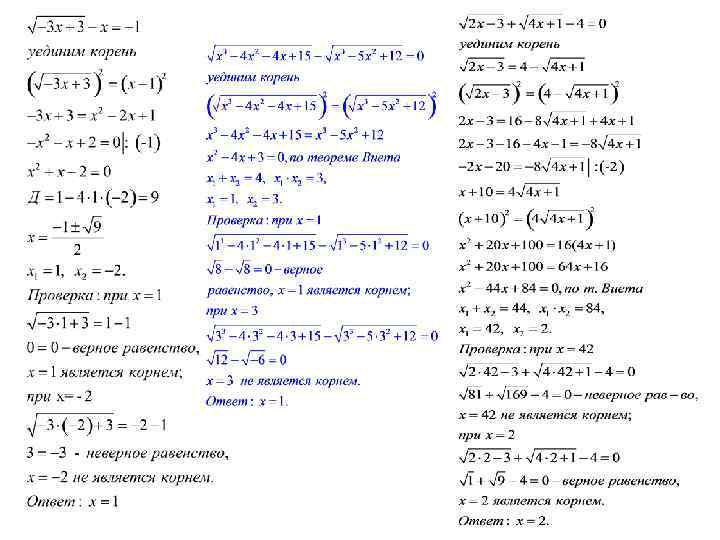 √(-3x+3) - x = -1
уединим корень
(√(-3x+3))² = (x-1)²
-3x+3 = x² - 2x + 1
-x² - x + 2 = 0|: (-1)
x² + x - 2 = 0
Д = 1 - 4·1·(-2) = 9
x = (-1 ± √9)/2
x₁ = 1, x₂ = -2.
Проверка: при x = 1
√(-3·1+3) = 1-1
0 = 0 – верное равенство,
x = 1 является корнем;
при x= -2
√(-3·(-2)+3) = -2-1
3 = -3 - неверное равенство,
x = -2 не является корнем.
Ответ: x = 1
√(x³-4x²-4x+15) - √(x³-5x²+12) = 0
уединим корень
(√(x³-4x²-4x+15))² = (√(x³-5x²+12))²
x³-4x²-4x+15 = x³-5x²+12
x²-4x+3 = 0, по теореме Виета
x₁+x₂ = 4, x₁·x₂ = 3,
x₁ = 1, x₂ = 3.
Проверка: при x = 1
√(1³-4·1²-4·1+15) - √(1³-5·1²+12) = 0
√8 - √8 = 0 – верное
равенство, x = 1 является корнем;
при x = 3
√(3³-4·3²-4·3+15) - √(3³-5·3²+12) = 0
√12 - √-6 = 0
x = 3 не является корнем.
Ответ: x = 1.
√(2x-3) + √(4x+1) - 4 = 0
уединим корень
√(2x-3) = 4 - √(4x+1)
(√(2x-3))² = (4 - √(4x+1))²
2x-3 = 16 - 8√(4x+1) + 4x+1
2x-3-16-4x-1 = -8√(4x+1)
-2x-20 = -8√(4x+1)|:(-2)
x+10 = 4√(4x+1)
(x+10)² = (4√(4x+1))²
x²+20x+100 = 16(4x+1)
x²+20x+100 = 64x+16
x²-44x+84 = 0, по т. Виета
x₁+x₂ = 44, x₁·x₂ = 84,
x₁ = 42, x₂ = 2.
Проверка: при x = 42
√(2·42-3) + √(4·42+1) - 4 = 0
√81 + √169 - 4 = 0 – неверное рав-во,
x = 42 не является корнем;
при x = 2
√(2·2-3) + √(4·2+1) - 4 = 0
√1 + √9 - 4 = 0 – верное равенство,
x = 2 является корнем.
Ответ: x = 2.